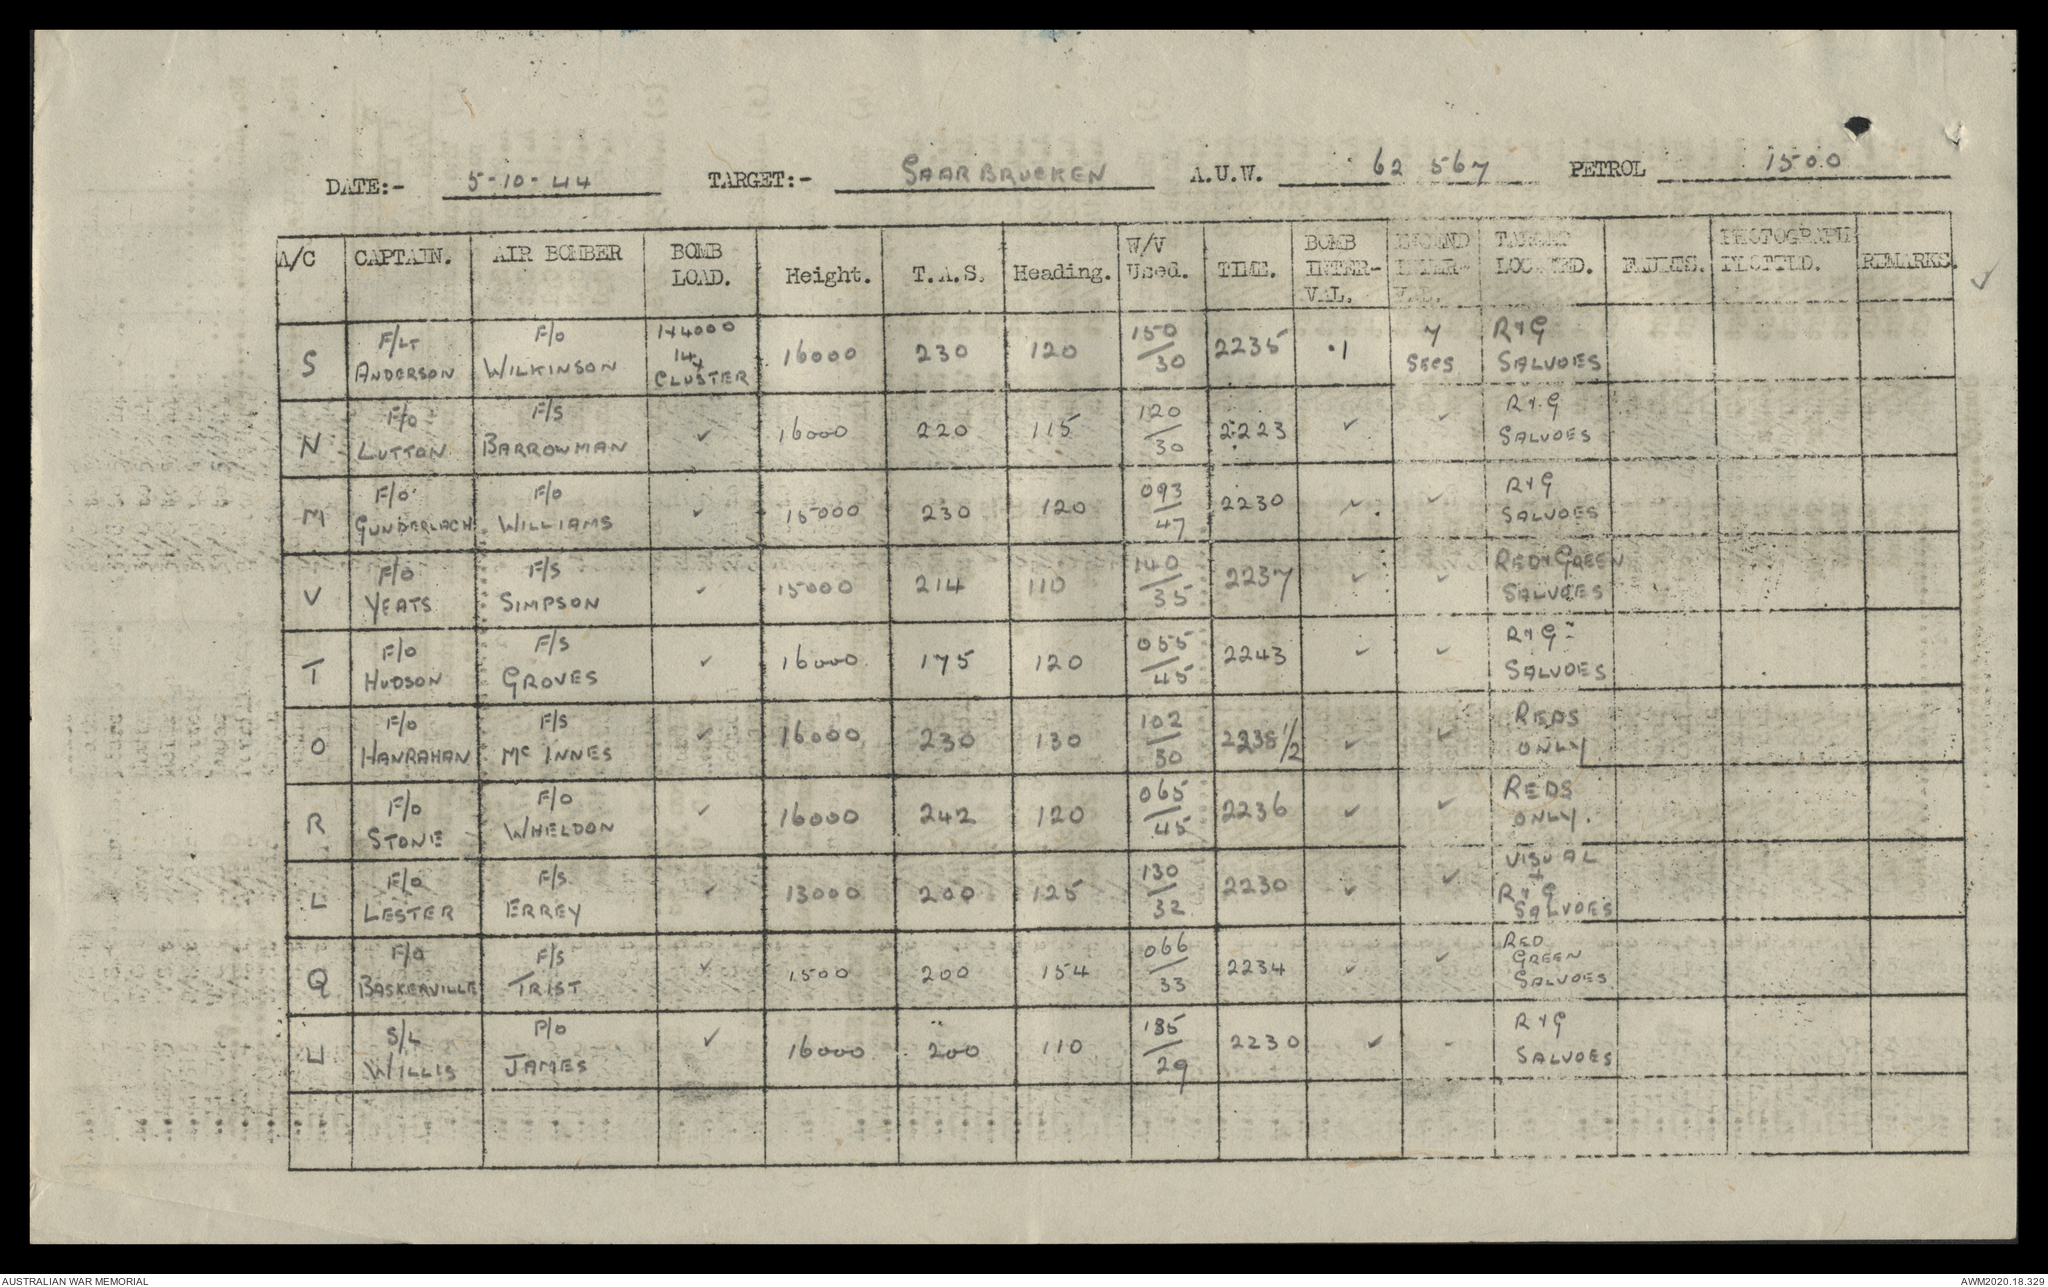 DATE:- 5-10-44 TARGET:- SAARBRUCKEN A.U.W. 62 567 PETROL 1500
A/C CAPTAIN. AIR BOMBER BOMB LOAD. Height. T.A.S. Heading. W/V Used. TIME. BOMB INTER-VAL. INCEND INTER-VAL. TARGET LOCATED. FAULTS. PHOTOGRAPH PLOTTED. REMARKS.
S F/LT ANDERSON F/O WILKINSON 1x4000 14x CLUSTER 16000 230 120 150/30 2235 .1 7 SECS R+G SALVOES
N F/O LUTTON F/S BARROWMAN ✓ 16000 220 115 120/30 2223 ✓ ✓ R+G SALVOES
M F/O GUNDERLACH F/O WILLIAMS ✓ 15000 230 120 093/47 2230 ✓ ✓ R+G SALVOES
V F/O YEATS F/S SIMPSON ✓ 15000 214 110 140/35 2237 ✓ ✓ RED+GREEN SALVOES
T F/O HUDSON F/S GROVES ✓ 16000 175 120 055/45 2243 ✓ ✓ R+G SALVOES
O F/O HANRAHAN F/S McINNES ✓ 16000 230 130 102/30 ✓ ✓ REDS ONLY
R F/O STONE F/O WHELDON ✓ 16000 242 120 065/45 2236 ✓ ✓ REDS ONLY.
L F/O LESTER F/S ERREY ✓ 13000 200 125 130/32 2230 ✓ ✓ VISUAL + R+G SALVOES
Q F/O BASKERVILLE F/S TRIST ✓ 1500 200 154 066/33 2234 ✓ ✓ RED GREEN SALVOES
U S/L WILLIS P/O JAMES ✓ 16000 200 110 /29 2230 ✓ - R+G SALVOES
AUSTRALIAN WAR MEMORIAL AWM2020.18.329